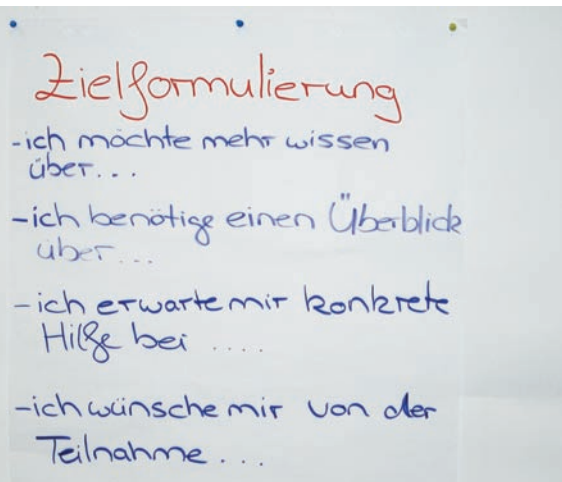 Zielformulierung
-ich möchte mehr wissen
über...
-ich benötige einen Überblick
über...
-ich erwarte mir konkrete
Hilfe bei ....
-ich wünsche mir von der
Teilnahme...